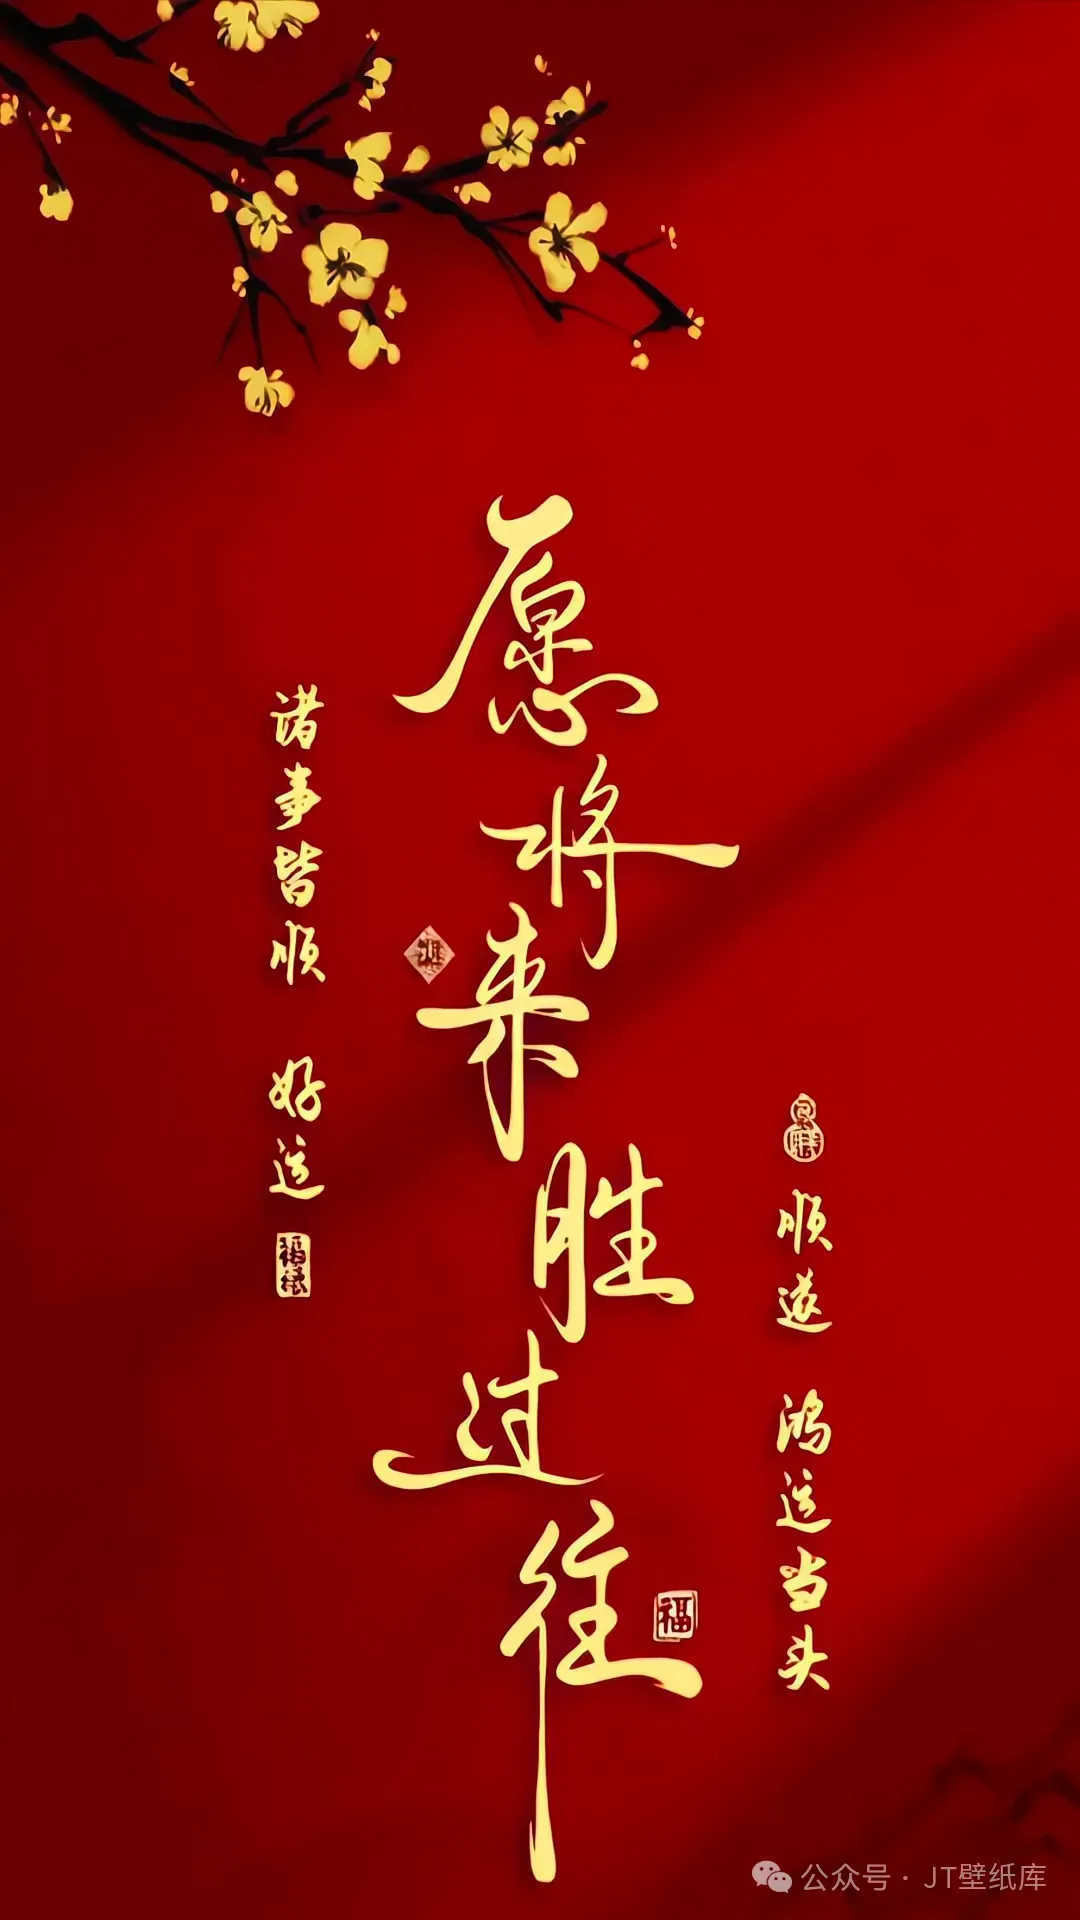 愿将来胜过往
诸事皆顺 好运
顺遂 鸿运当头
福
公众号 · JT壁纸库